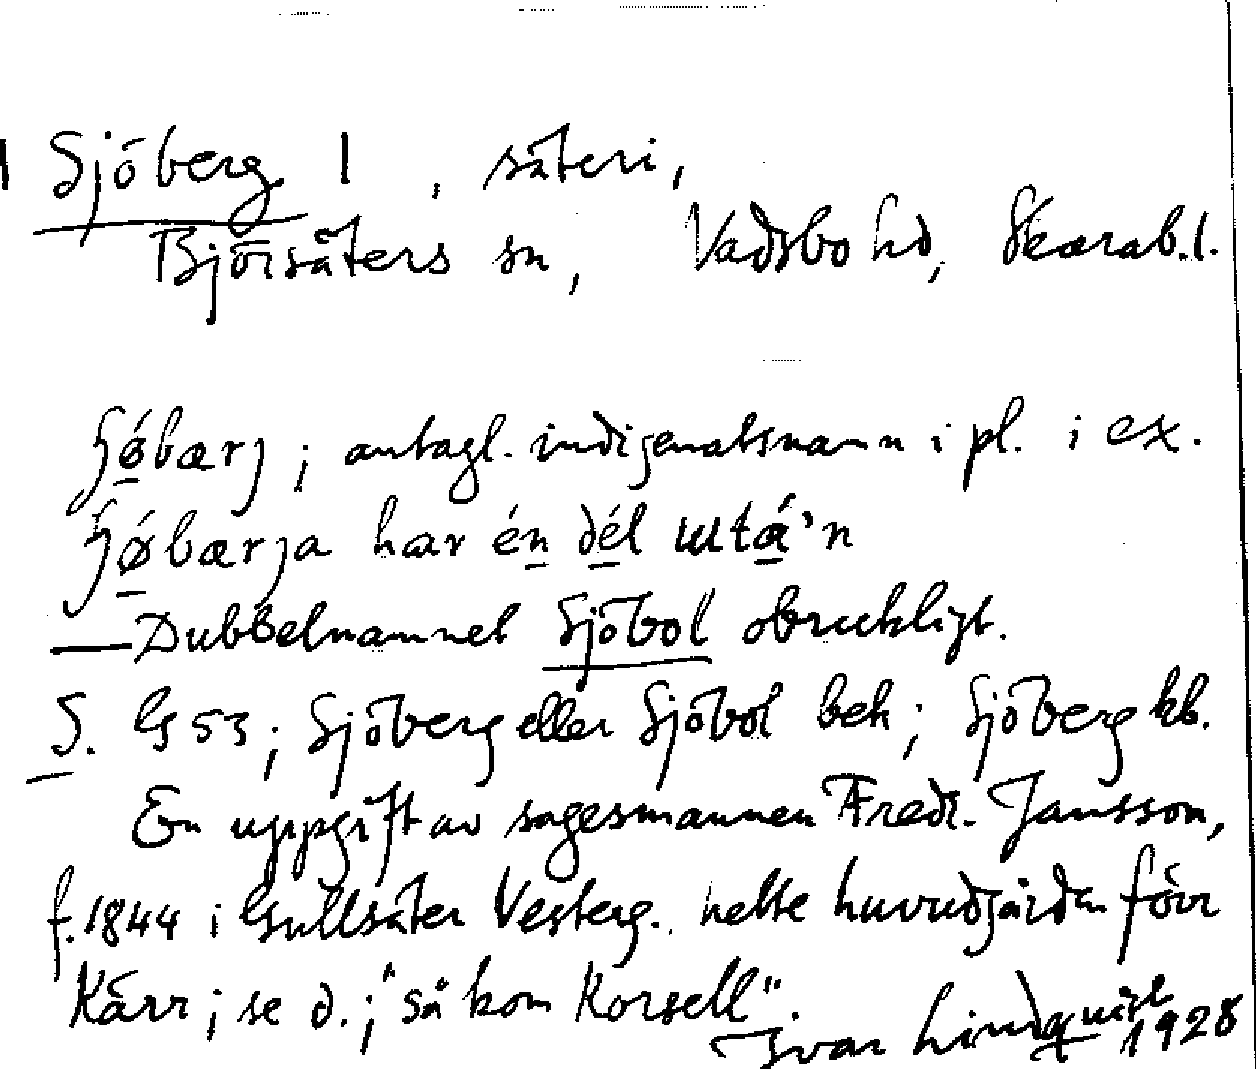 Sjöberg 1, säteri,
Björsäters sn, Vadsbo hd, Skarab.l.
ɧǿbærj; antagl. indigenatsnamn i pl. i ex.
ɧǿbærja har én dél utá'n
— Dubbelnamnet Sjöbol obrukligt.
S. G 53; Sjöberg eller Sjöbol bek; Sjöberg kb.
En uppgift av sagesmannen Fredr. Jansson,
f. 1844 i Gullsäter Vesterg. hette huvudgården förr
Kärr; se d.; "så kom Korsell".
Ivar Lindquist 1928